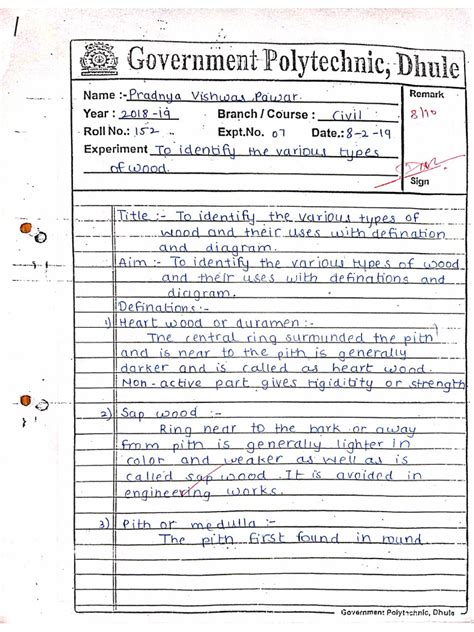 Government Polytechnic, Dhule
Name :- Pradnya Vishwas Pawar.
Remark
Year : 2018-19 Branch / Course : Civil
8/10
Roll No.: 152 Expt.No. 07 Date.: 8-2-19
Experiment To identify the various types
of wood.
Sign
Title :- To identify the various types of
wood and their uses with defination
and diagram.
Aim :- To identify the various types of wood
and their uses with definations and
diagram.
Definations :-
1) Heart wood or duramen :-
The central ring surmunded the pith
and is near to the pith is generally
darker and is called as heart wood.
Non-active part gives rigidity or strength
2) Sap wood :-
Ring near to the bark or away
from pith is generally lighter in
color and weaker as well as is
called sap wood. It is avoided in
engineering works.
3) Pith or medulla :-
The pith first found in round
Government Polytechnic, Dhule